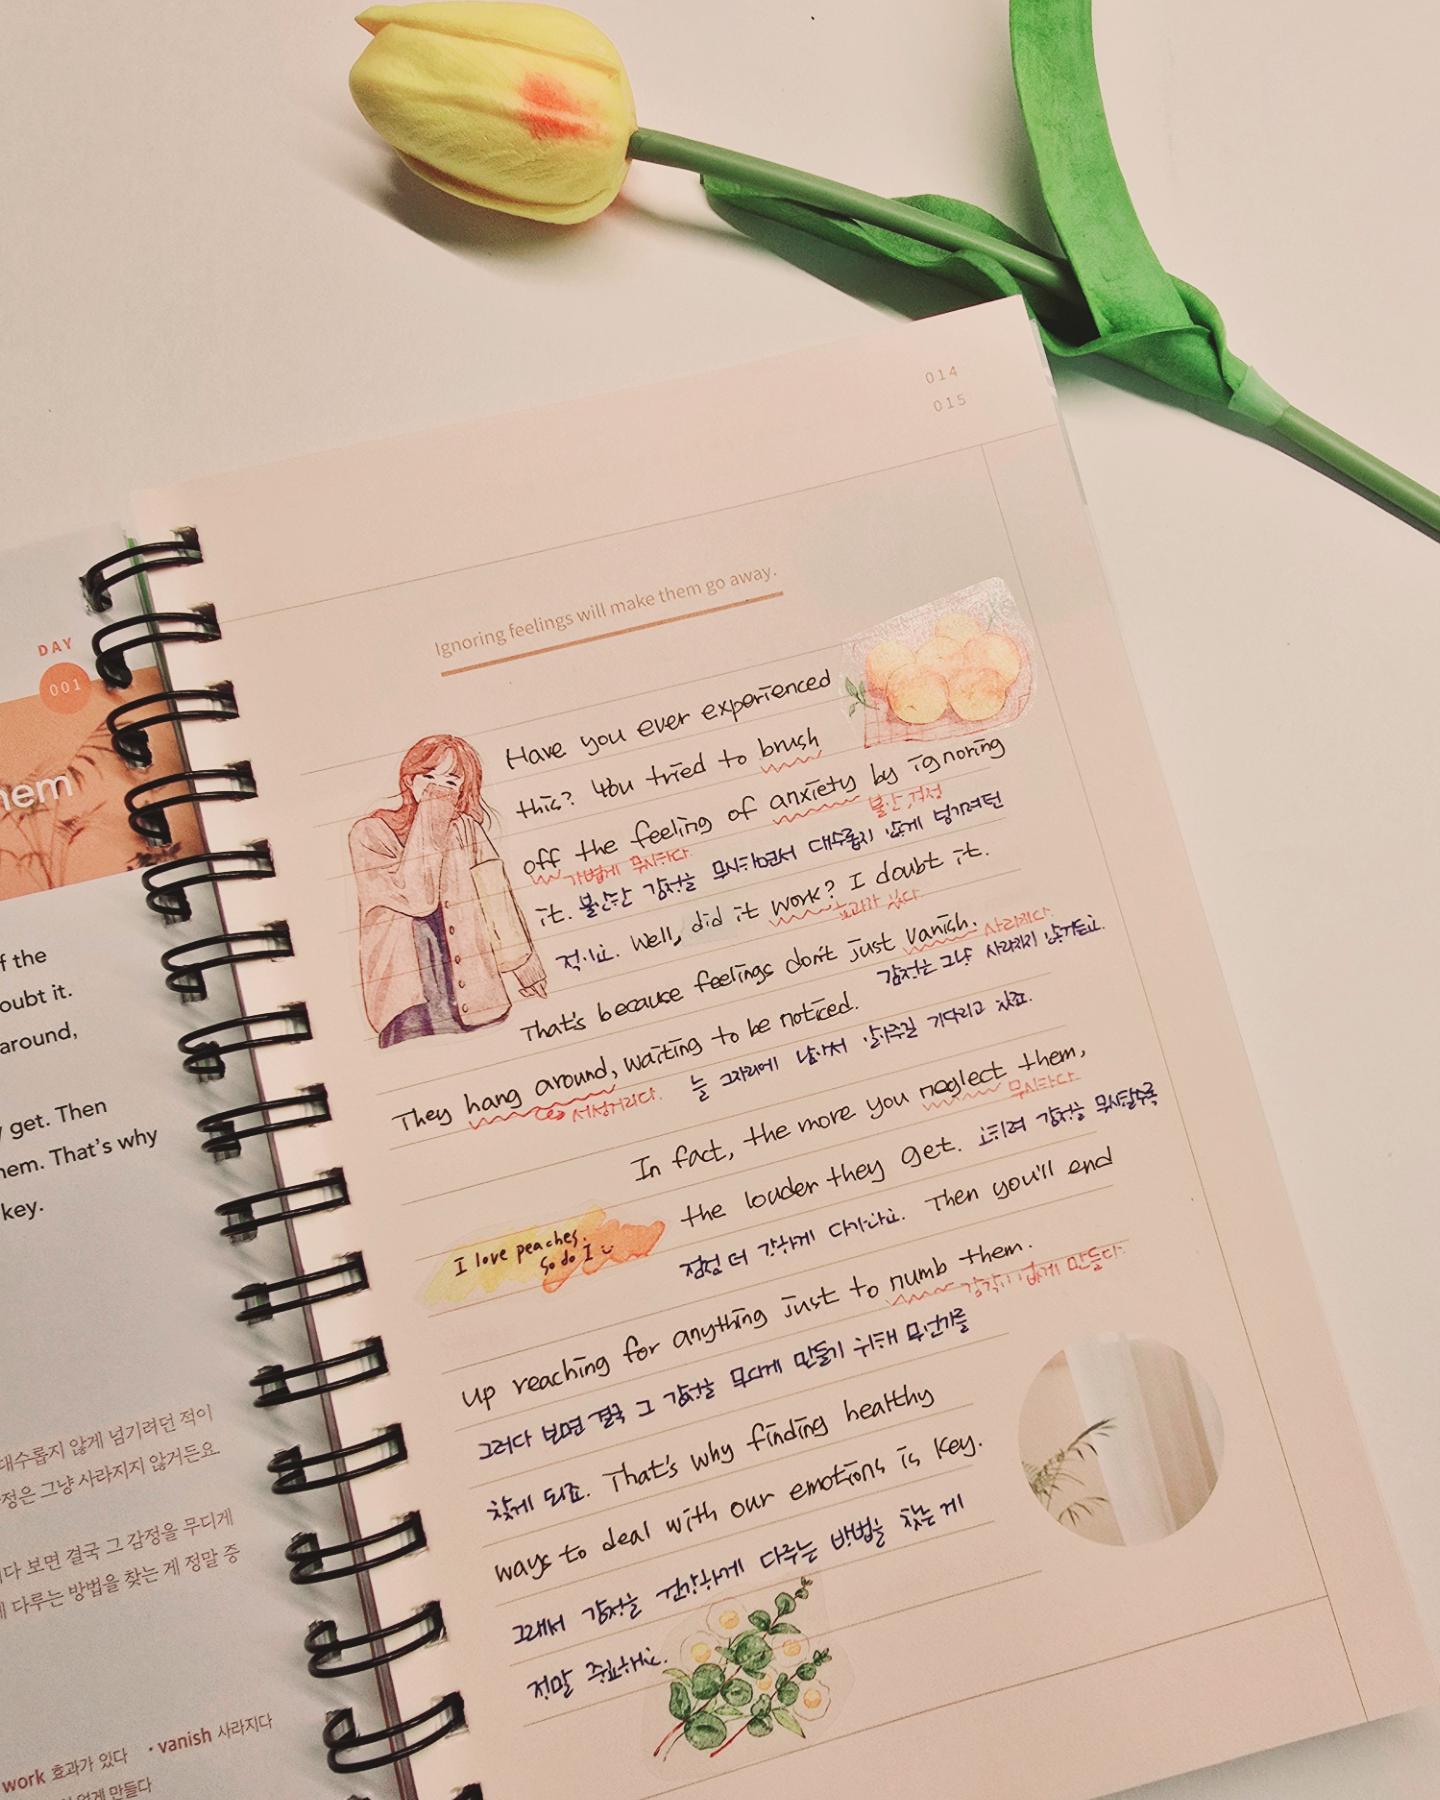 DAY
001
hem
f the
oubt it.
around,
y get. Then
hem. That's why
key.
대수롭지 않게 넘기려던 적이
정은 그냥 사라지지 않거든요
다 보면 결국 그 감정을 무디게
다루는 방법을 찾는 게 정말 중
work 효과가 있다 • vanish 사라지다
없게 만들다
014
015
Ignoring feelings will make them go away.
Have you ever experienced
this? You tried to brush
off the feeling of anxiety by ignoring
가볍게 무시하다. 불안, 걱정
it. 불안한 감정을 무시하면서 대수롭지 않게 넘기려던
적이요. Well, did it work? I doubt it.
효과가 있다.
That's because feelings don't just vanish. 사라지다.
감정은 그냥 사라지지 않거든요.
They hang around, waiting to be noticed.
서성거리다. 늘 그자리에 남아서 알아주길 기다리고 있죠.
In fact, the more you neglect them,
무시하다.
the louder they get. 오히려 감정을 무시할수록
점점 더 강하게 다가와요. Then you'll end
up reaching for anything just to numb them.
감각이 없게 만들다.
그러다 보면 결국 그 감정을 무디게 만들기 위해 무언가를
찾게 되죠. That's why finding healthy
ways to deal with our emotions is key.
그래서 감정을 건강하게 다루는 방법을 찾는 게
정말 중요해요.
I love peaches.
So do I